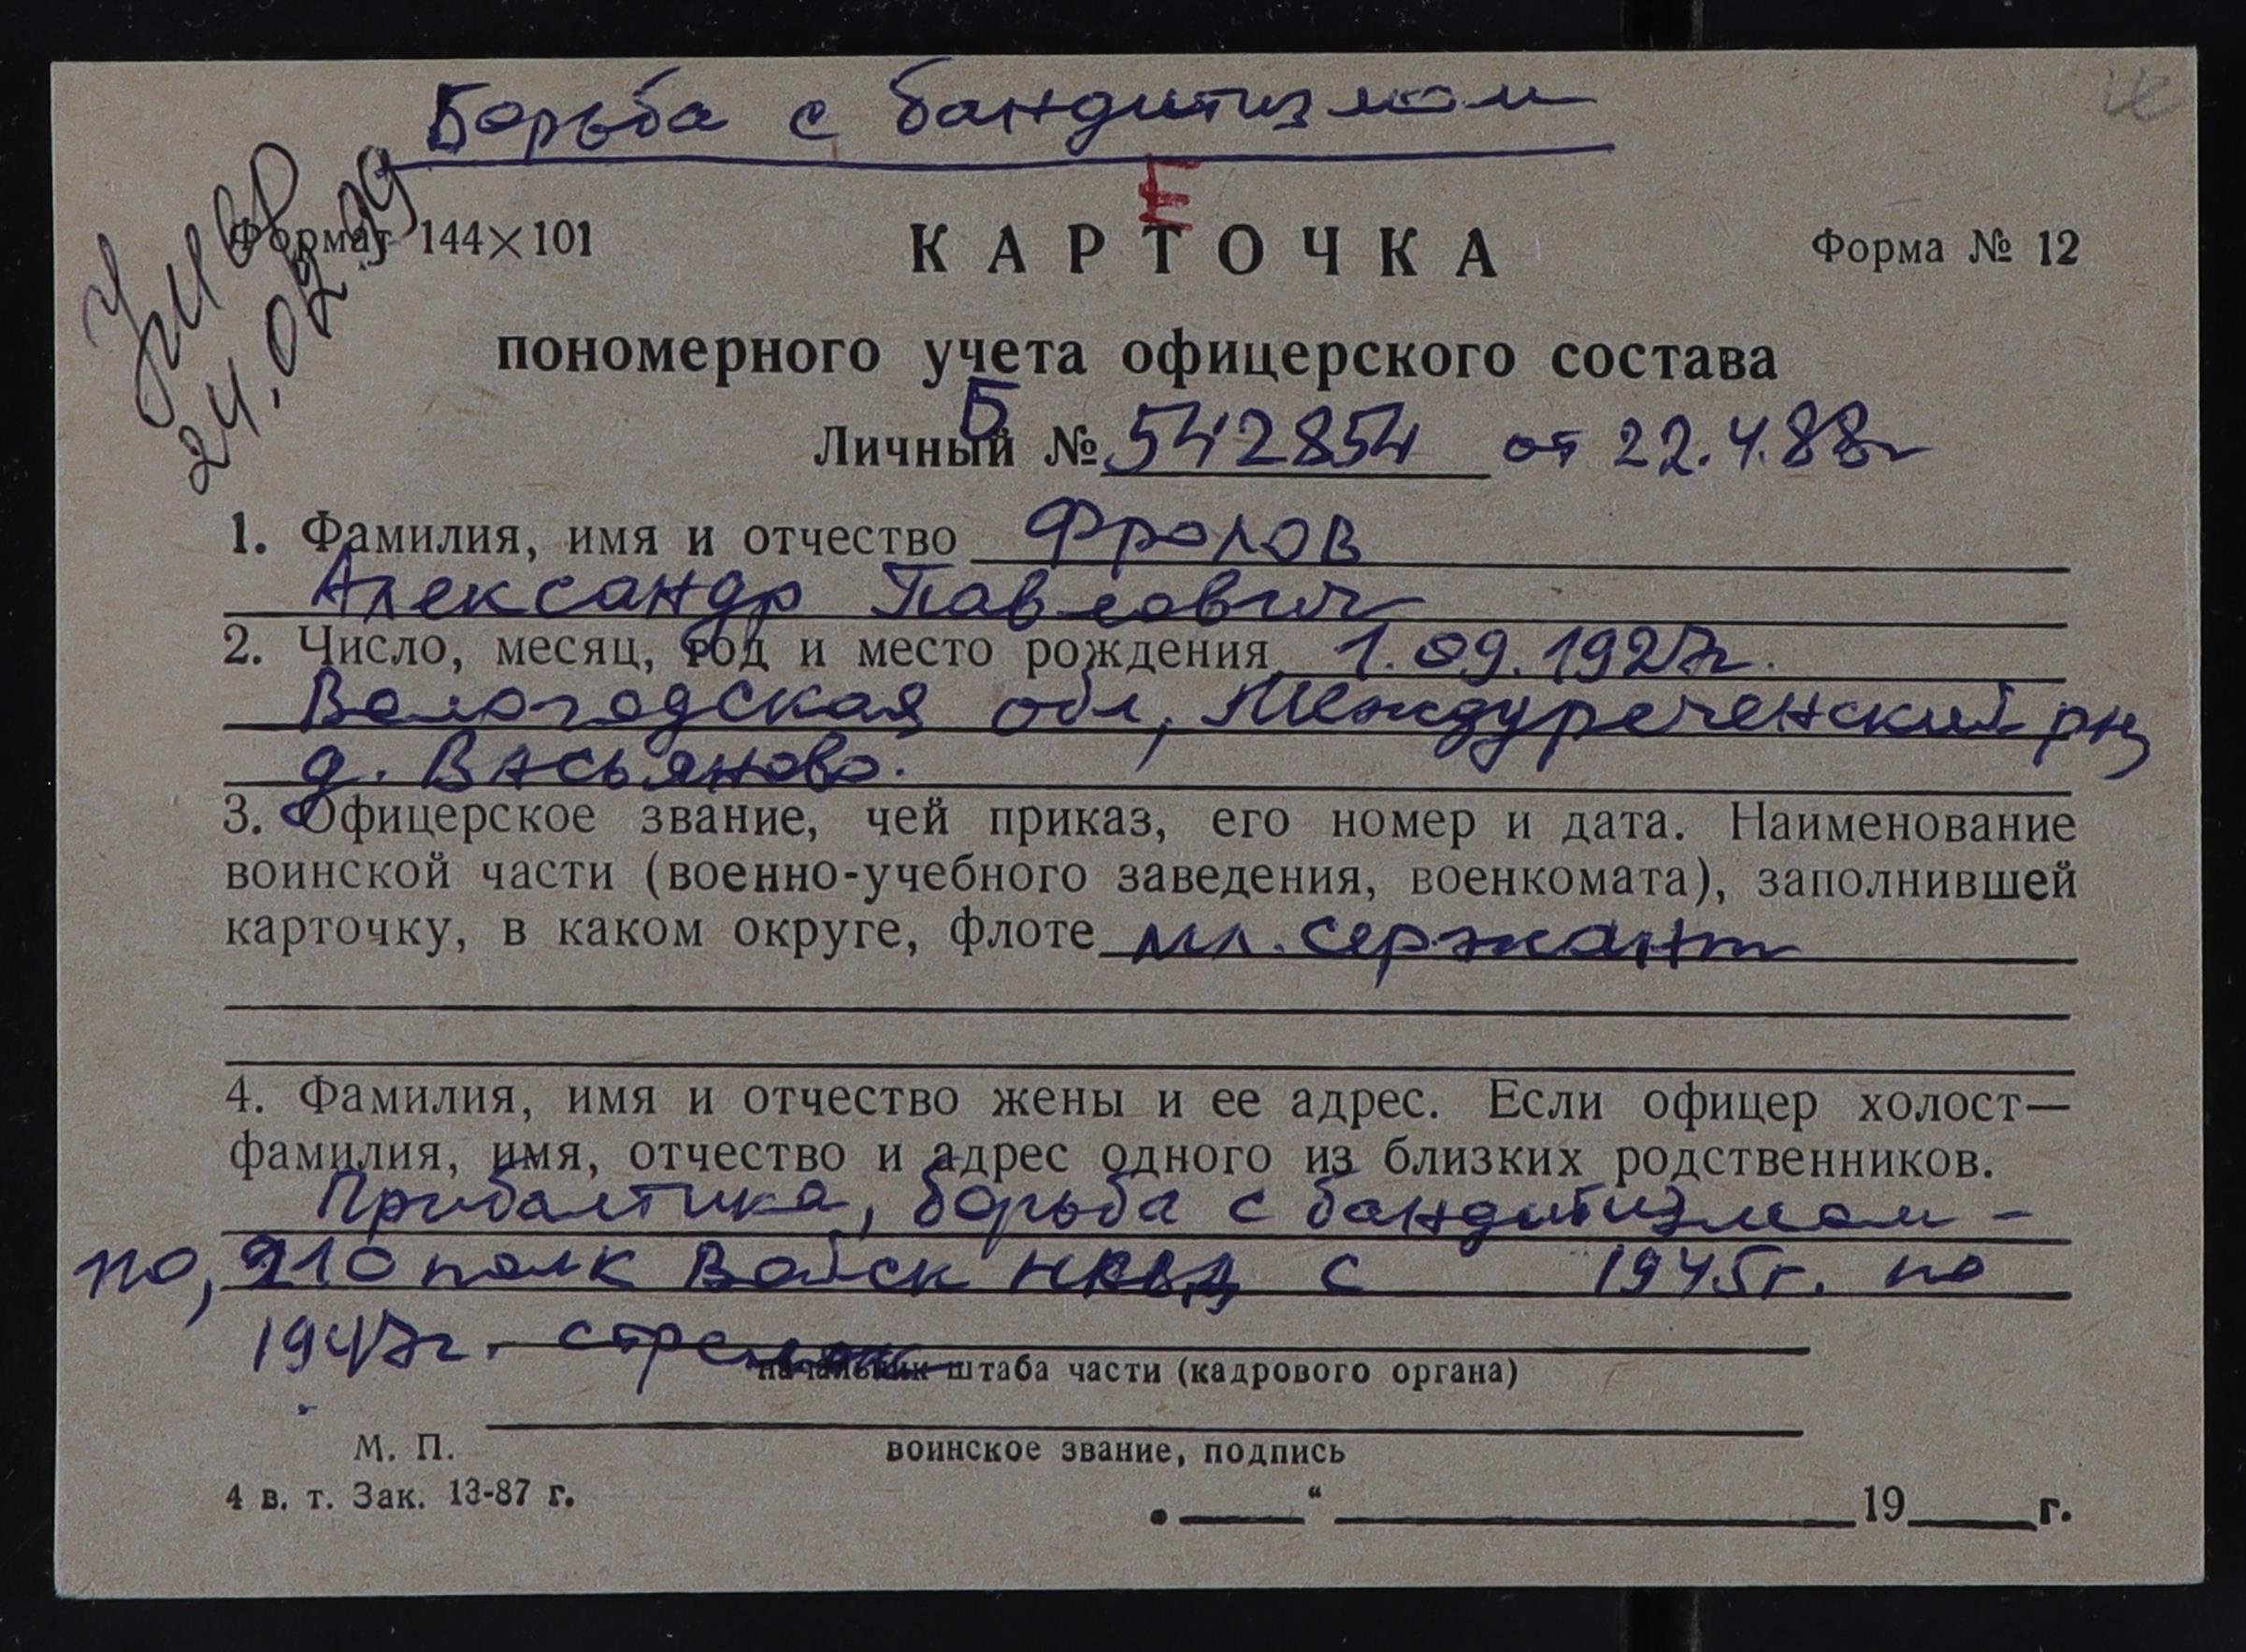 Борьба с бандитизмом
24.02.99
Е
Формат 144×101
КАРТОЧКА
Форма № 12
пономерного учета офицерского состава
Б
Личный № 542854 от 22.4.88г
1. Фамилия, имя и отчество Фролов
Александр Павлович
2. Число, месяц, год и место рождения 1.09.1927г.
Вологодская обл, Междуреченский рн,
д. Васьяново.
3. Офицерское звание, чей приказ, его номер и дата. Наименование
воинской части (военно-учебного заведения, военкомата), заполнившей
карточку, в каком округе, флоте мл. сержант
4. Фамилия, имя и отчество жены и ее адрес. Если офицер холост—
фамилия, имя, отчество и адрес одного из близких родственников.
Прибалтика, борьба с бандитизмом -
по, 210 полк Войск НКВД с 1945г. по
1947г. стрелок
начальник штаба части (кадрового органа)
М. П.
воинское звание, подпись
4 в. т. Зак. 13-87 г.
„ “ 19 г.